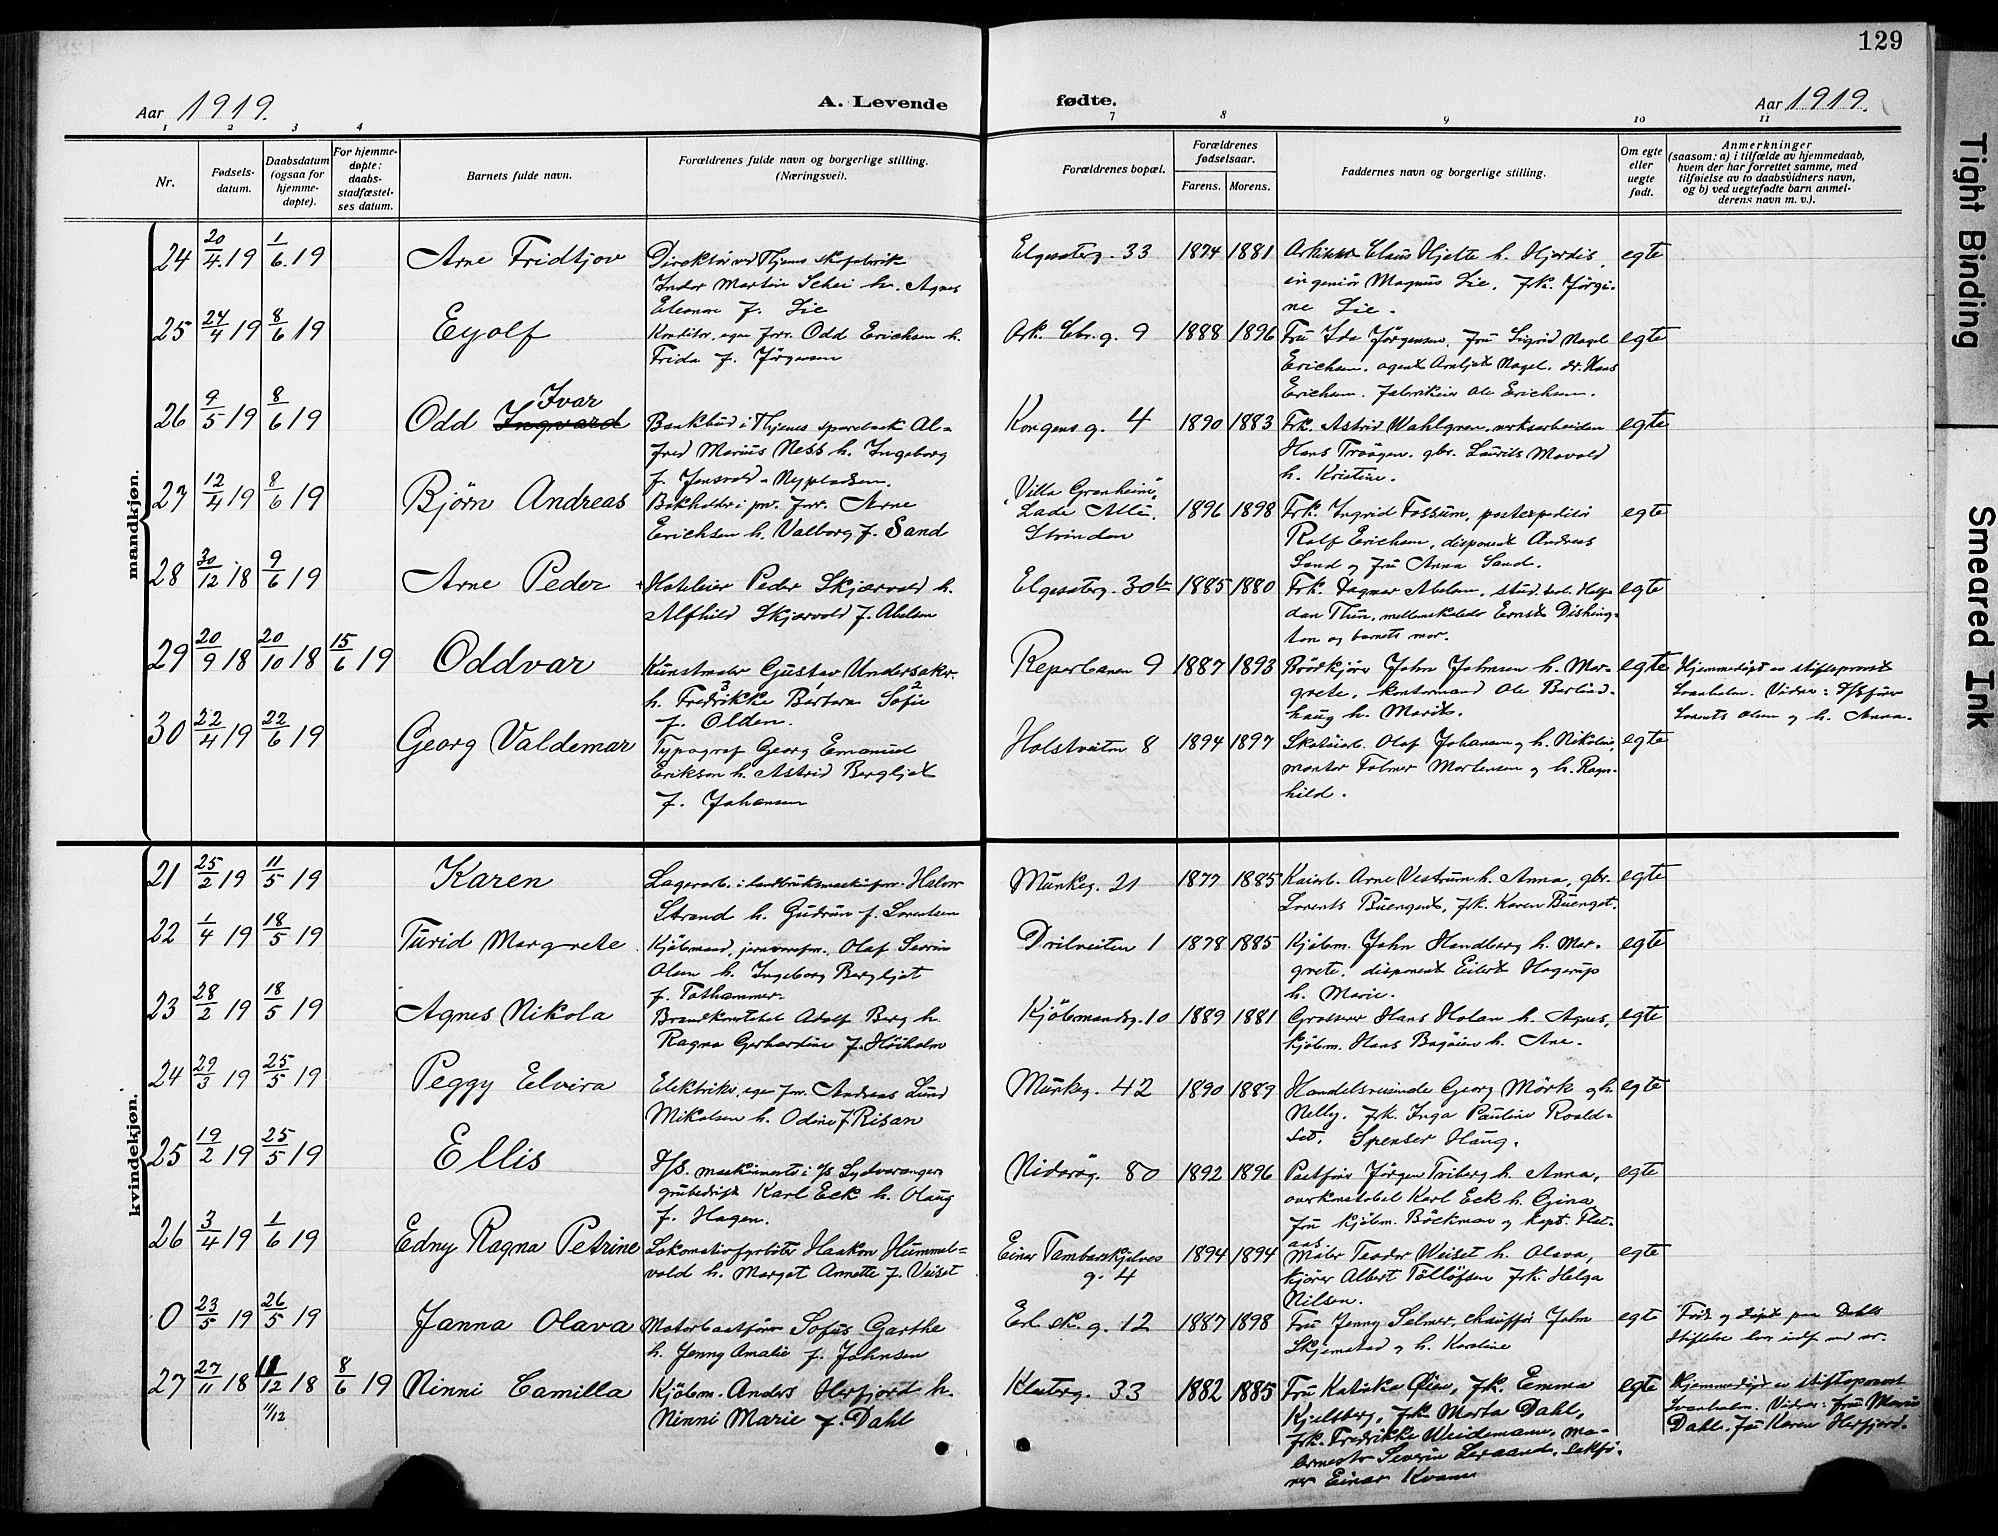 129
Aar 1919.
A. Levende
fødte.
Aar 1919.
1 2 3 4
7 8 9 10 11
Nr.
Fødsels-
datum.
Daabsdatum
(ogsaa for
hjemme-
døpte).
For hjemme-
døpte:
daabs-
stadfæstel-
ses datum.
Barnets fulde navn.
Forældrenes fulde navn og borgerlige stilling.
(Næringsvei).
Forældrenes bopæl.
Forældrenes
fødselsaar.
Farens. Morens.
Faddernes navn og borgerlige stilling.
Om egte
eller
uegte
født.
Anmerkninger
(saasom: a) i tilfælde av hjemmedaab,
hvem der har forrettet samme, med
tilføielse av to daabsvidners navn,
og b) ved uegtefødte barn anmel-
derens navn m. v.).
mandkjøn.
24 20/4 19 1/6 19 Arne Fridtjov
Indor Martin Schei h. Agnes
Eleonor f. Lie
Elgesæterg. 33 1874 1881
Arkitekt Claus Hjelte h. Hjørdis,
ingeniør Magnus Lie. Frk. Jørgi-
ne Lie.
egte
25 24/4 19 8/6 19 Eyolf
Konditor, egen forr. Odd Erichsen h.
Frida f. Jørgensen
9 1888 1896
Fru Ida Jørgensen. Fru Sigrid Nagel
Erichsen. agent Arnljot Nagel. dr. Hans
Erichsen. Fabrikeier Ole Erichsen.
egte
26 9/5 19 8/6 19 Odd Ingvard Ivar
Bankbud i Thjems sparebank Al-
fred Marius Ness h. Ingeborg
Kongens g. 4 1890 1883
Frk. Astrid Wahlgren. verksarbeider
Hans Trøøgen. gbr. Laurits Movold
h. Kristine.
egte
27 12/4 19 8/6 19 Bjørn Andreas
Bokholder i pr. forr. Arne
Erichsen h. Valborg f. Sand
"Villa Granheim",
Lade Alle.
Strinden
1896 1898
Frk. Ingrid Fossum, postexpeditør
Rolf Erichsen, disponent Andreas
Sand og fru Anna Sand.
egte
28 30/12 18 9/6 19 Arne Peder
Hoteleier Peder Skjærvold h.
Alfhild Skjærvold f. Abelsen
Elgesæterg. 30b 1885 1880
Frk. Dagmar Abelsen, stud. Half-
dan Thun, Ernst Disking-
ton og barnets mor.
egte
29 20/9 18 20/10 18 15/6 19 Oddvar
Kunstmaler Gustav Undersaker
h. Fredrikke Barbara Sofie
f. Olden.
Reperbanen 9 1887 1893
Brødkjører John Johnsen h. Mar-
grete, kontormand Ole Berlind-
haug h. Marit.
egte
Hjemmedøpt av stiftsprovst
Svanholm. Vidner:
Lorents Olsen og h. Anna.
30 22/4 19 22/6 19 Georg Valdemar
Typograf Georg Emanuel
Erikson h. Astrid Bergljot
f. Johansen
Holstveiten 8 1894 1897
Olaf Johansen og h. Nikoline,
montør Folmer Mortensen og h. Ragn-
hild.
egte
kvindekjøn.
21 25/2 19 11/5 19 Karen
Lagerarb. i landbruksmaskinforr. Halvor
Strand h. Gudrun f. Lorentsen
Munkeg. 21 1877 1885
Kaiarb. Arne Vestrum h. Anna, gbr.
Lorents Buenget, frk. Karen Buenget.
egte
22 1/4 19 18/5 19 Turid Margrete
Kjøbmand, jernvareforr., Olaf Severin
Olsen h. Ingeborg Bergljot
f. Tothammer.
Drilveiten 1 1878 1885
Kjøbm. John Handberg h. Mar-
grete. disponent Eilert Hagerup
h. Marie.
egte
23 28/2 19 18/5 19 Agnes Nikola
Brandkonstabel Adolf Berg h.
Ragna Gerhardine f. Høiholm
Kjøbmandsg. 10 1889 1881
Grosserer Hans Holan h. Agnes,
kjøbm. Hans Bagøien h. Ane.
egte
24 29/3 19 25/5 19 Peggy Elvira
Elektriker, egen forr. Andreas Lund
Mikalsen h. Odine f. Risan
Munkeg. 42 1890 1889
Handelsreisende Georg Mørk og h.
Nelly. frk. Inga Pauline Roald-
set. Spenser Haug.
egte
25 19/2 19 25/5 19 Ellis
D/S. maskinmester i A/S Sydvaranger
grubedrift Karl Eck h. Olaug
f. Hagen.
Nidarøg. 80 1892 1896
Postfører Jørgen Triberg h. Anna,
overkonstabel Karl Eck h. Gina,
fru kjøbm. Bøckman og kapt. Flat-
aas.
egte
26 3/4 19 1/6 19 Edny Ragna Petrine
Lokomotivfyrbøter Haakon Hummel-
vold h. Margot Annette f. Veiset
Einar Tambarskjelves
g. 4
1894 1894
Maler Teodor Weiset h. Olava,
kjører Albert Tølløfsen frk. Helga
Nilsen.
egte
0 23/5 19 26/5 19 Janna Olava
Motorbaatfører Sofus Garthe
h. Jenny Amalie f. Johnsen
Erl. sk. g. 12 1887 1898
Fru Jenny Selmer, chauffør John
Skjemstad og h. Karoline
egte
Født og døpt paa Dahls
Stiftelse
27 27/11 18 11/12 18 8/6 19 Ninni Camilla
11/12
Kjøbm. Anders Herfjord h.
Ninni Marie f. Dahl
Klosterg. 33 1882 1885
Fru Katinka Øien, frk. Emma
Kjelsberg, frk Marta Dahl,
frk. Fredrikke Weidemann, ma-
lermester Severin Leraand, sekfø-
rer Einar Kvam
egte
Hjemmedøpt av stiftsprovst
Svanholm. Vidner: Fru Marie
Dahl. Fru Karen Herfjord.
Tight Binding
Smeared Ink